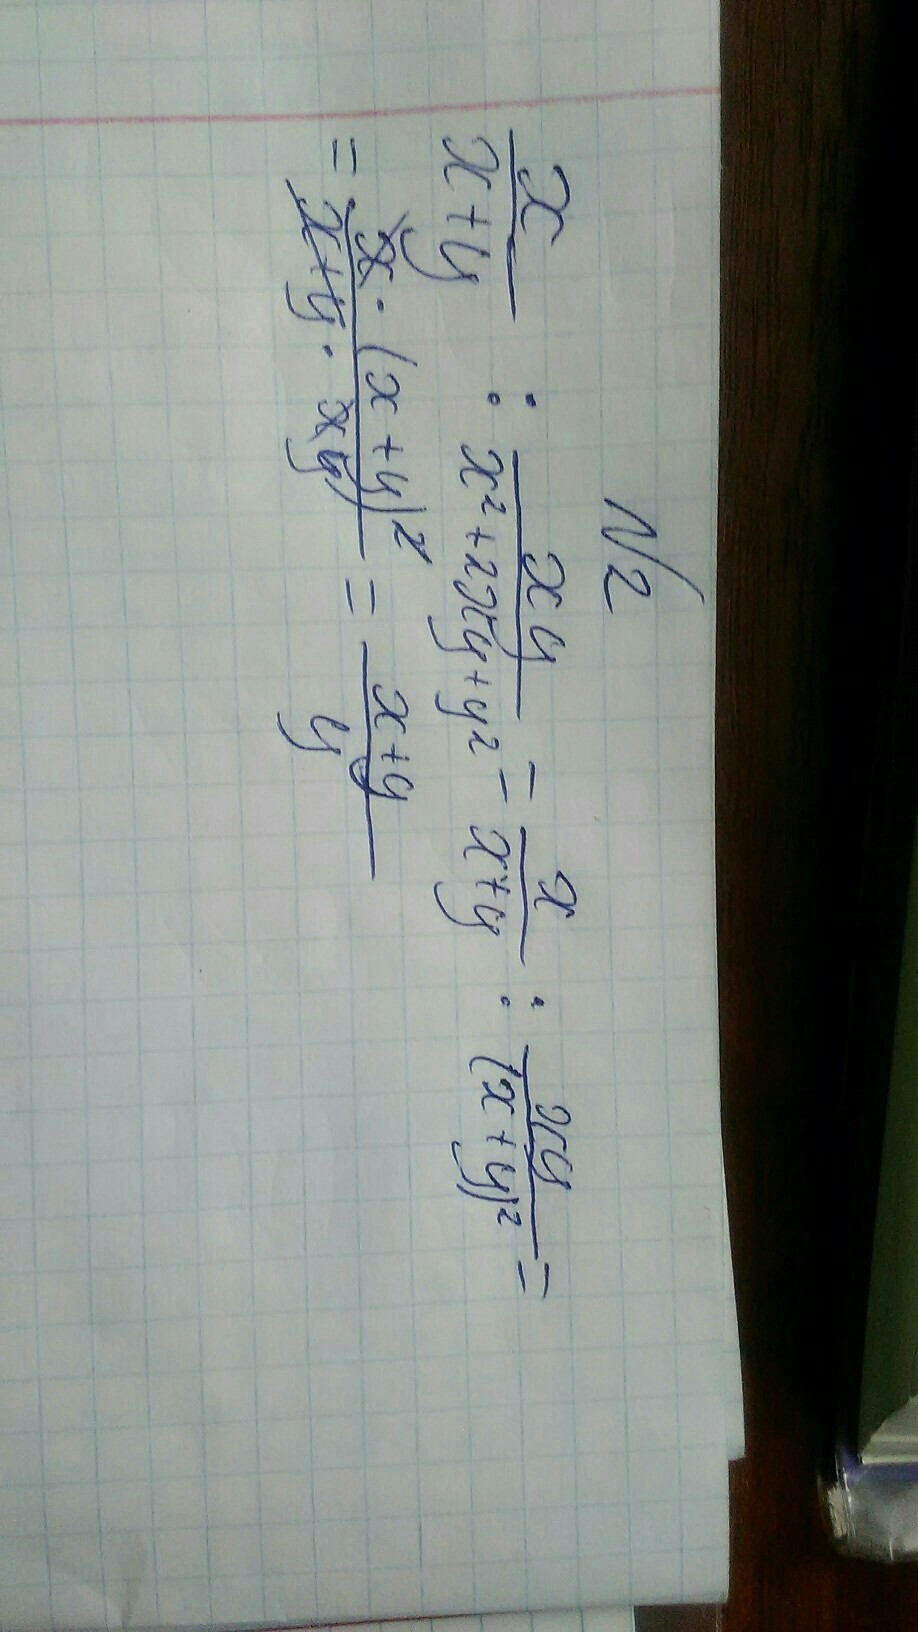 N2
x/(x+y) : xy/(x²+2xy+y²) = x/(x+y) : xy/(x+y)² =
= x·(x+y)²/(x+y·xy) = (x+y)/y